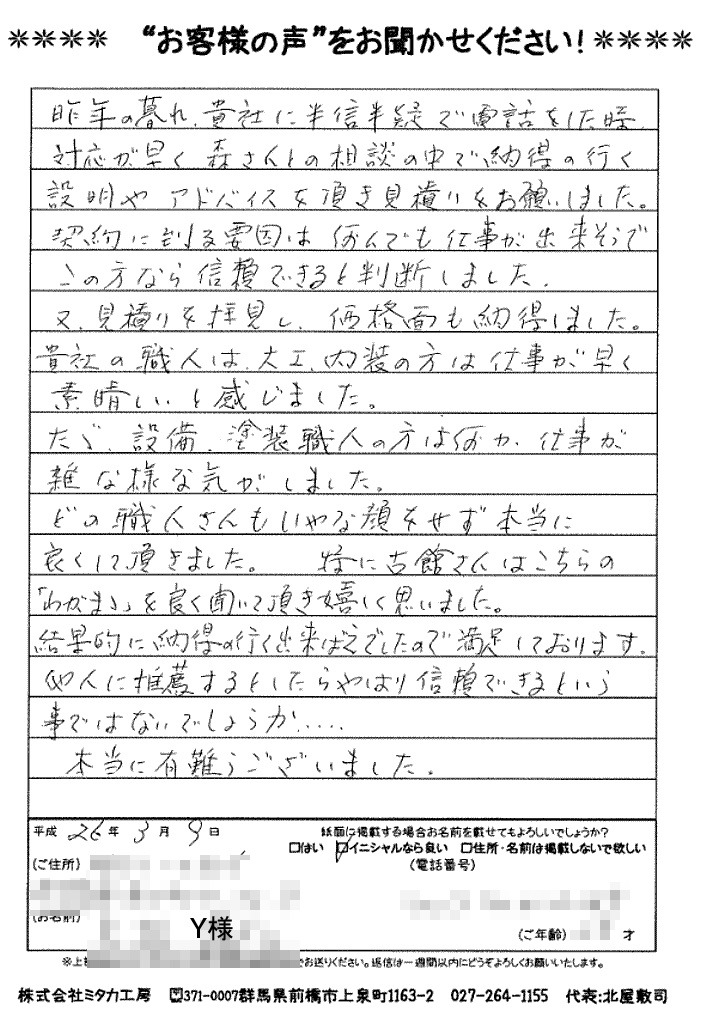 **** “お客様の声”をお聞かせください！****
昨年の暮れ、貴社に半信半疑で電話をした時、
対応が早く 森さんとの相談の中で納得の行く
説明や アドバイスを頂き見積りをお願いしました。
契約に到る要因は 何んでも仕事が出来そうで
この方なら信頼できると判断しました。
又、見積りを拝見し、価格面も納得しました。
貴社の職人は、大工、内装の方は仕事が早く
素晴しいと感じました。
たゞ、設備、塗装職人の方は何か、仕事が
雑な様な気がしました。
どの職人さんもいやな顔をせず本当に
良くして頂きました。 特に古舘さんはこちらの
「わがまゝ」を良く聞いて頂き嬉しく思いました。
結果的に納得の行く出来ばえでしたので満足しております。
他人に推薦するとしたらやはり信頼できるという
事ではないでしょうか.....
本当に有難うございました。
平成 26 年 3 月 9 日
紙面に掲載する場合お名前を載せてもよろしいでしょうか？
□はい ☑イニシャルなら良い □住所・名前は掲載しないで欲しい
(ご住所)
(電話番号)
(お名前)
Y様
(ご年齢) 才
※上 でお送りください。返信は一週間以内にどうぞよろしくお願いいたします。
株式会社ミタカ工房 〒371-0007群馬県前橋市上泉町1163-2 027-264-1155 代表:北屋敷司